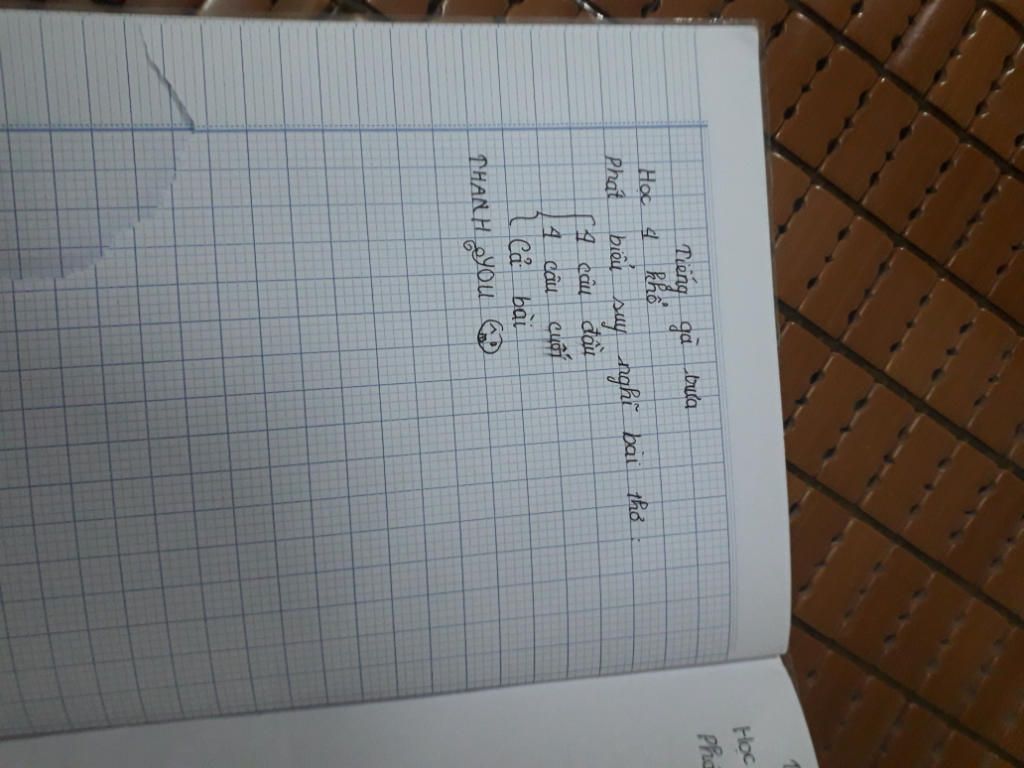 Tiếng gà trưa
Học 4 khổ
Phát biểu suy nghĩ bài thơ:
4 câu đầu
4 câu cuối
Cả bài
THANH YOU
Học
Phá